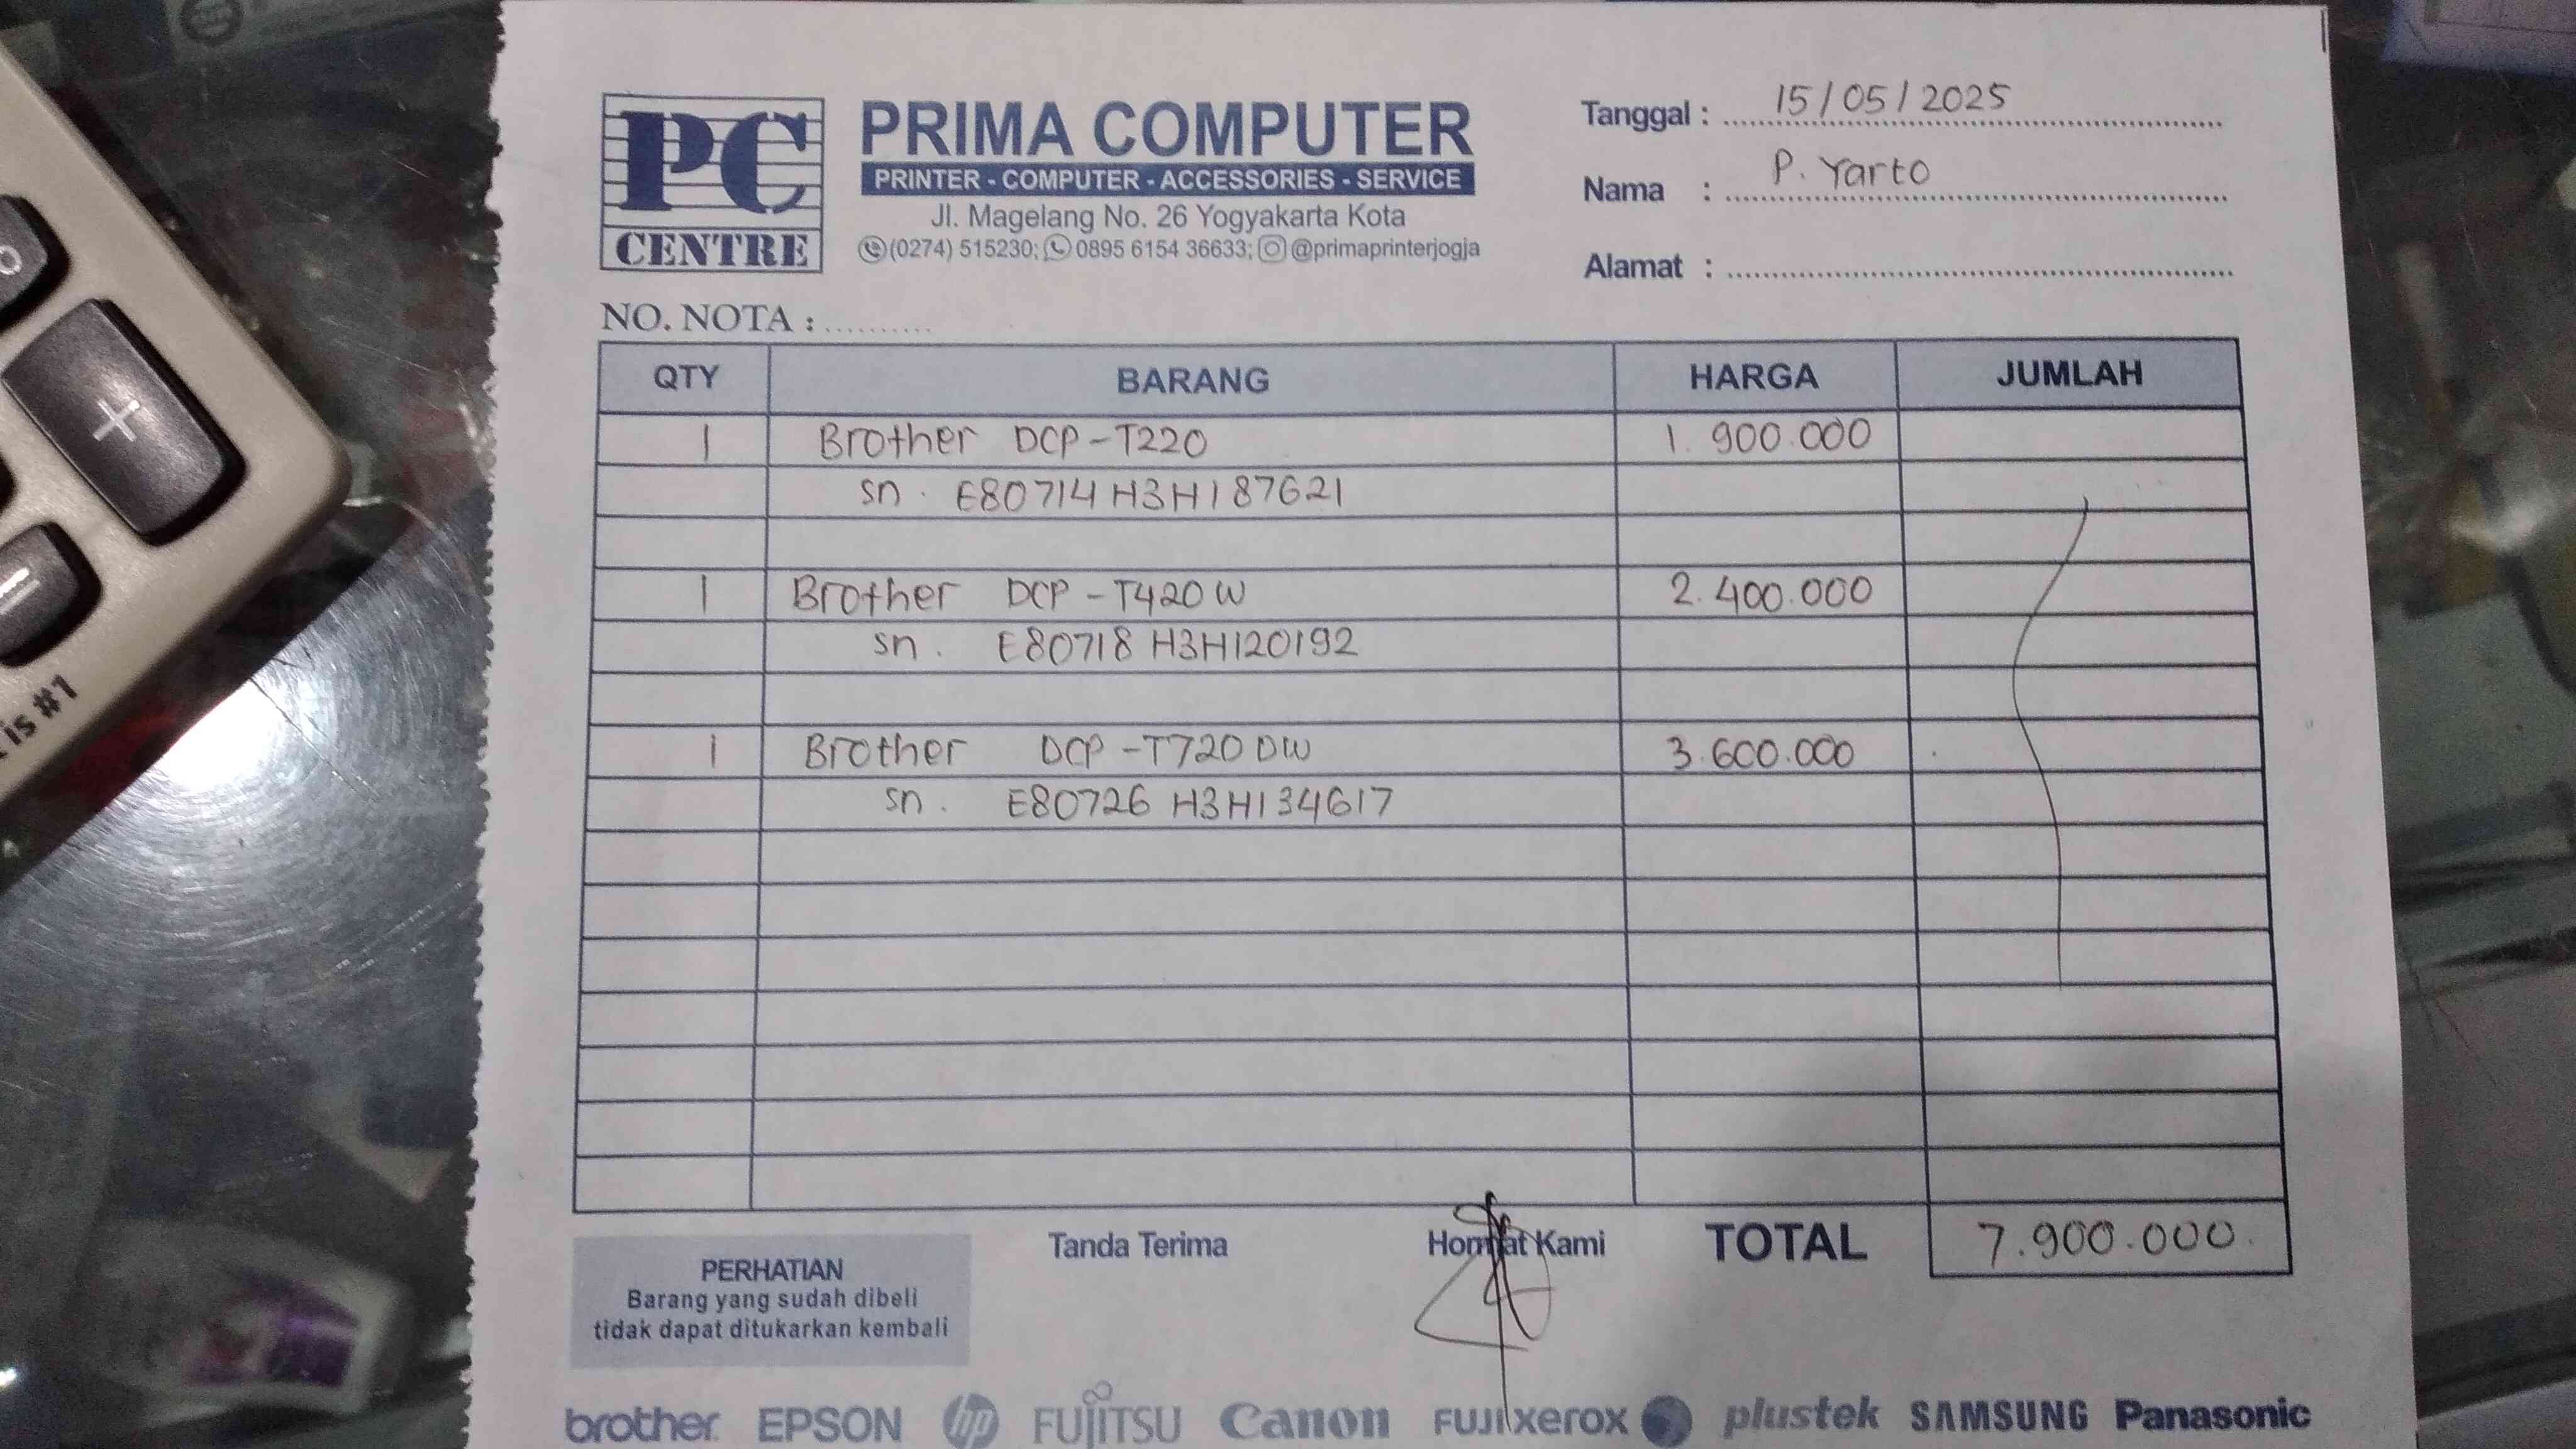 PC
CENTRE
PRIMA COMPUTER
PRINTER - COMPUTER - ACCESSORIES - SERVICE
Jl. Magelang No. 26 Yogyakarta Kota
(0274) 515230; 0895 6154 36633; @primaprinterjogja
Tanggal : 15/05/2025
Nama : P. Yarto
Alamat :
NO. NOTA :
QTY BARANG HARGA JUMLAH
1 Brother DCP-T220 1.900.000
sn. E80714H3H187621
1 Brother DCP-T420W 2.400.000
sn. E80718H3H120192
1 Brother DCP-T720DW 3.600.000
sn. E80726H3H134617
Tanda Terima Hormat Kami TOTAL 7.900.000
PERHATIAN
Barang yang sudah dibeli
tidak dapat ditukarkan kembali
brother EPSON hp FUJITSU Canon FUJI xerox plustek SAMSUNG Panasonic
+
is #1